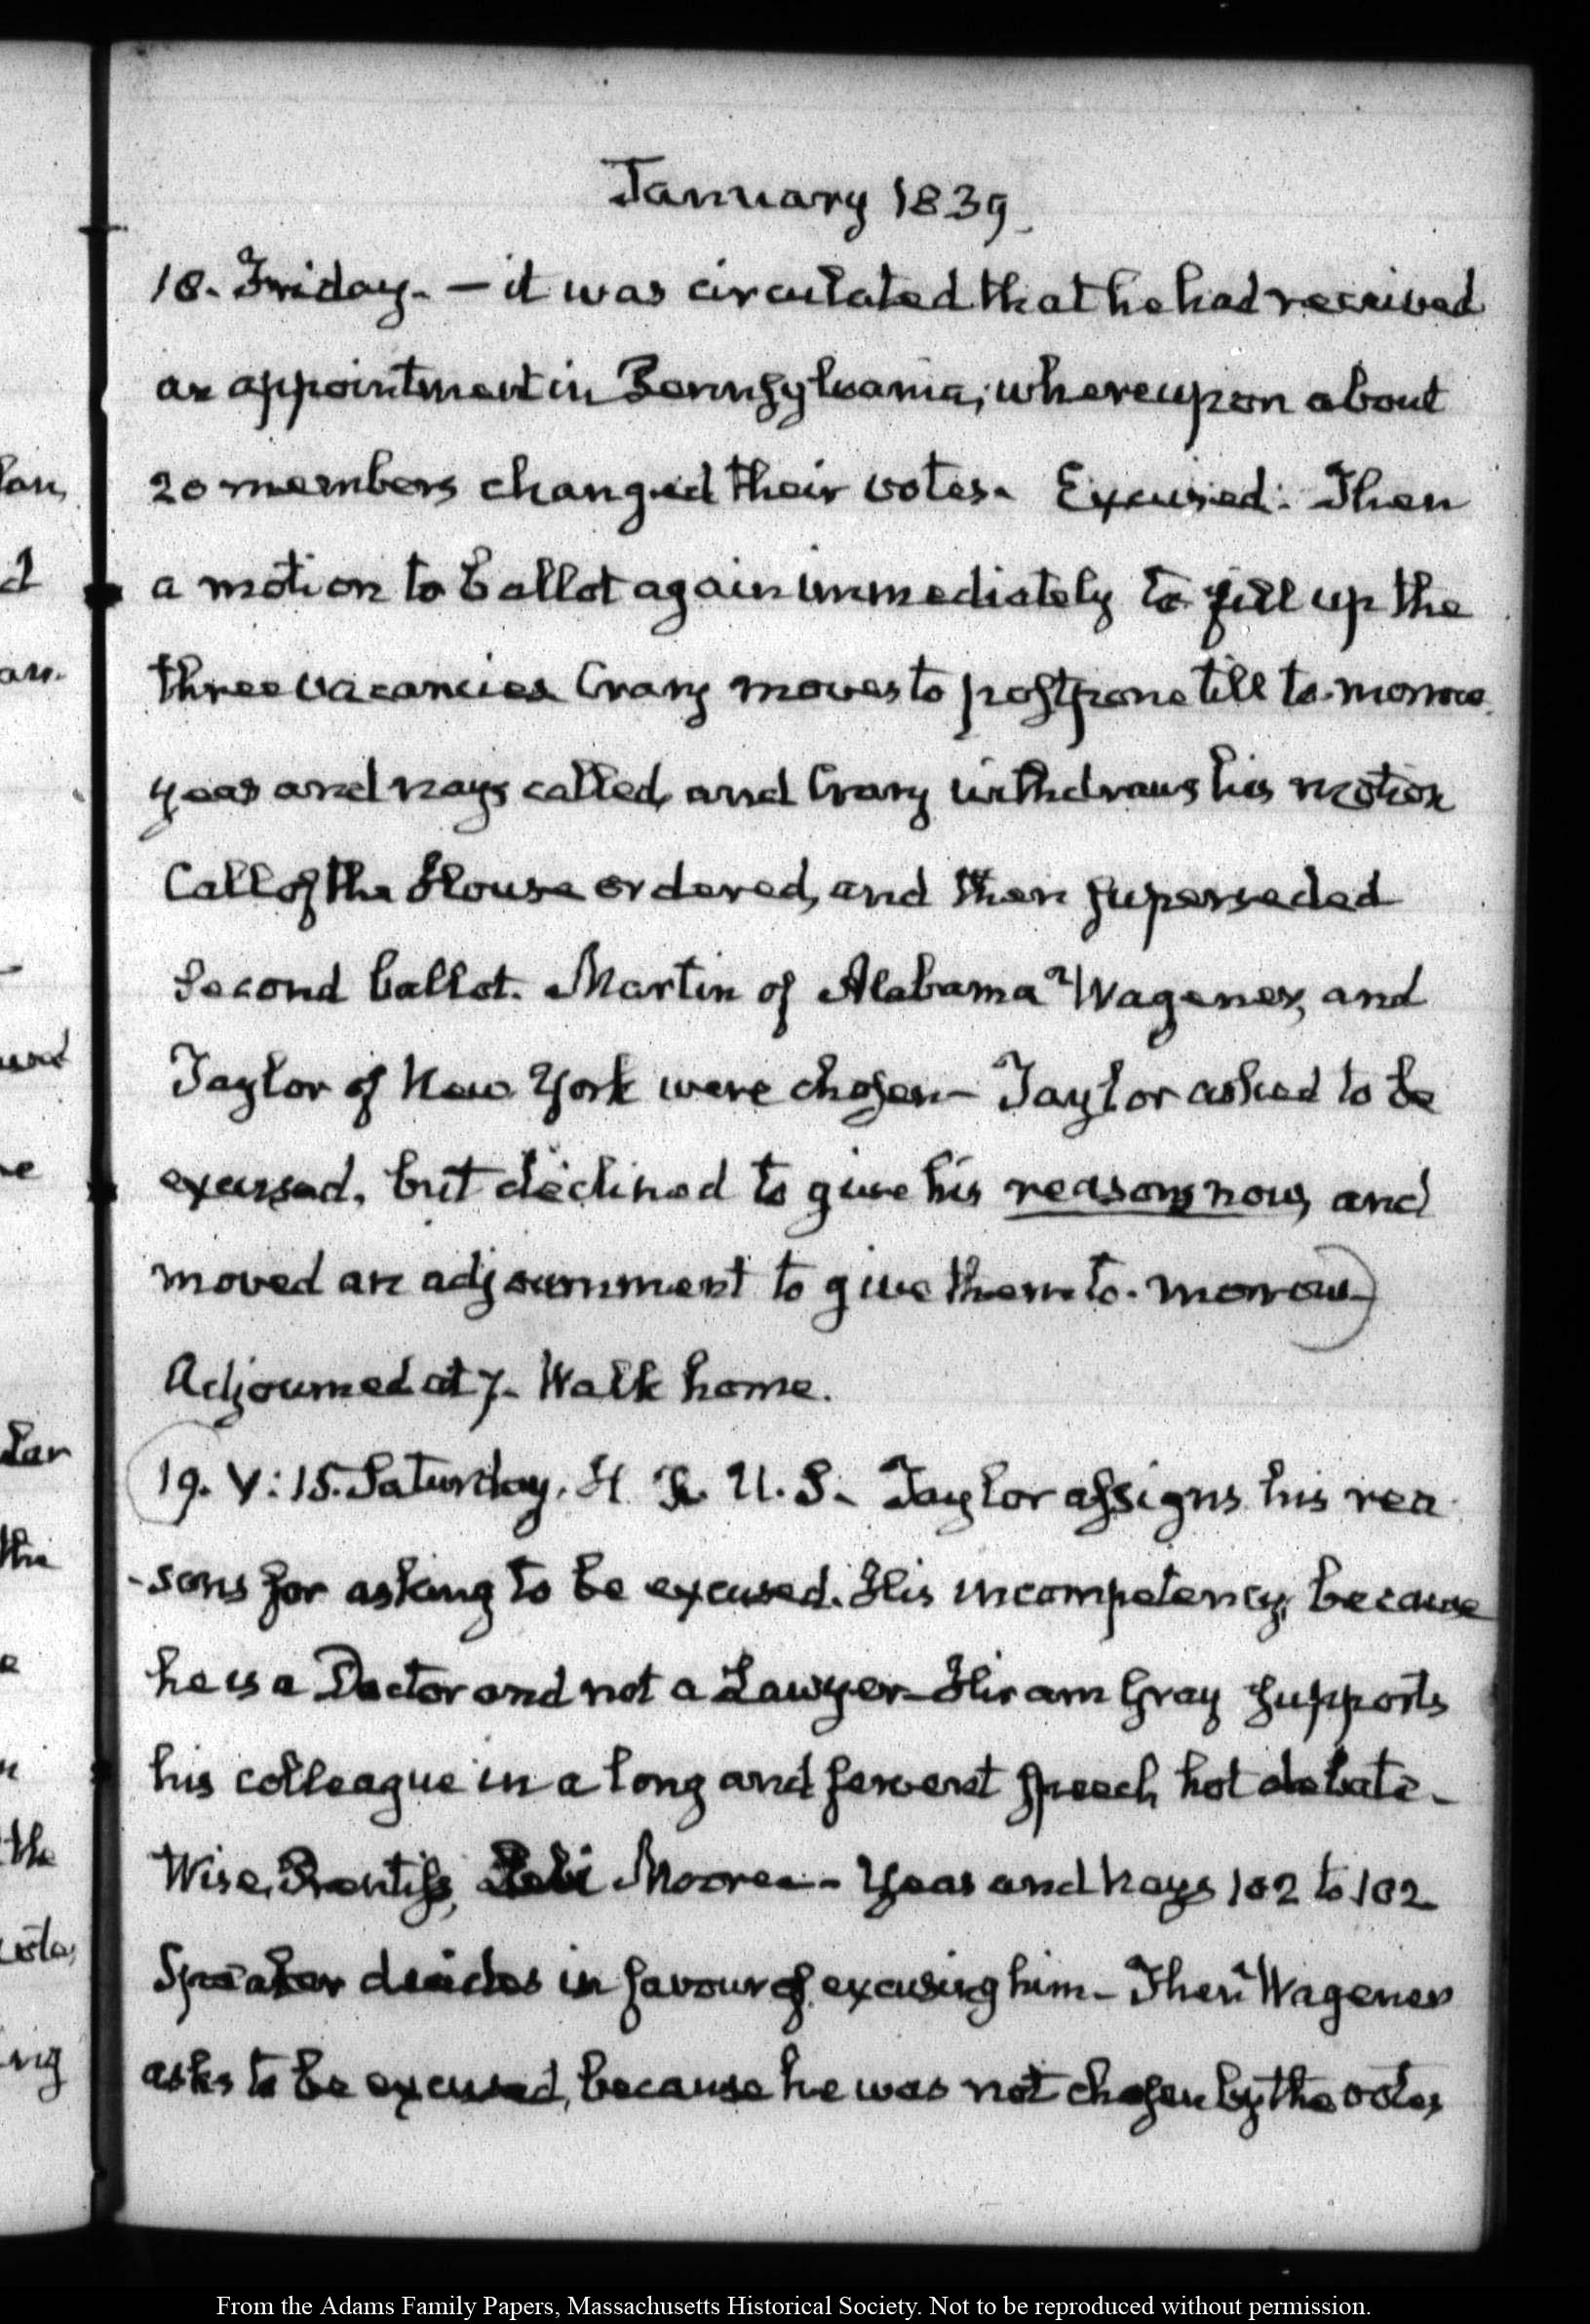 January 1839.
18. Friday. — it was circulated that he had received
an appointment in Pennsylvania; whereupon about
20 members changed their votes. Excused: Then
a motion to ballot again immediately to fill up the
three vacancies Crary moves to postpone till to-morrow.
yeas and nays called, and Crary withdraws his motion
Call of the House ordered, and then superseded
Second ballot. Martin of Alabama Wagener, and
Taylor of New York were chosen— Taylor asked to be
excused, but declined to give his reasons now, and
moved an adjournment to give them to-morrow—
Adjourned at 7. Walk home.
19. V: 15. Saturday. H. R. U.S. Taylor assigns his rea
-sons for asking to be excused. His incompetency, because
he is a Doctor and not a Lawyer— Hiram Gray supports
his colleague in a long and fervent speech hot debate—
Wise, Prentiss, Moore— Yeas and Nays 102 to 102
Speaker decides in favour of excusing him— Then Wagener
asks to be excused, because he was not chosen by the votes
lan,
d
an.
e
lar
the
e
n
the
votes
ing
From the Adams Family Papers, Massachusetts Historical Society. Not to be reproduced without permission.